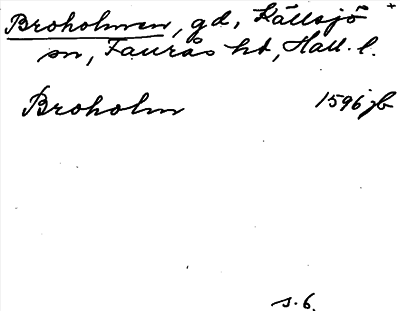 Broholmen, gd, Källsjö +
sn, Faurås hd, Hall. l.
Broholm 1596 jb
s. 6.